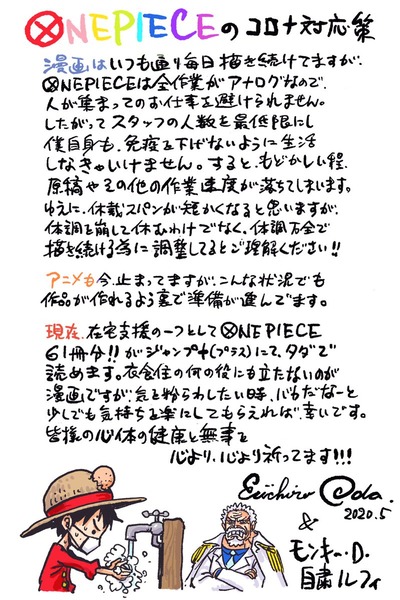 ONEPIECEのコロナ対応策
漫画はいつも通り毎日描き続けてますが、
ONEPIECEは全作業がアナログなので、
人が集まってのお仕事を避けられません。
したがってスタッフの人数を最低限にし
僕自身も、免疫を下げないように生活
しなきゃいけません。すると、もどかしい程、
原稿やその他の作業速度が落ちてしまいます。
ゆえに、休載スパンが短かくなると思いますが、
体調を崩して休むわけでなく、体調万全で
描き続ける為に調整してるとご理解ください!!
アニメも今、止まってますが、こんな状況でも
作品が作れるよう裏で準備が進んでます。
現在、在宅支援の一つとしてONEPIECE
61冊分!!がジャンプ+(プラス)にて、タダで
読めます。衣食住の何の役にも立たないのが
漫画ですが、気を紛らわしたい時、バカだなーと
少しでも気持ちを楽にしてもらえれば幸いです。
皆様の心体の健康と無事を
心より、心より祈ってます!!!
Eiichiro Oda.
2020.5
&
モンキー・D・
自粛ルフィ